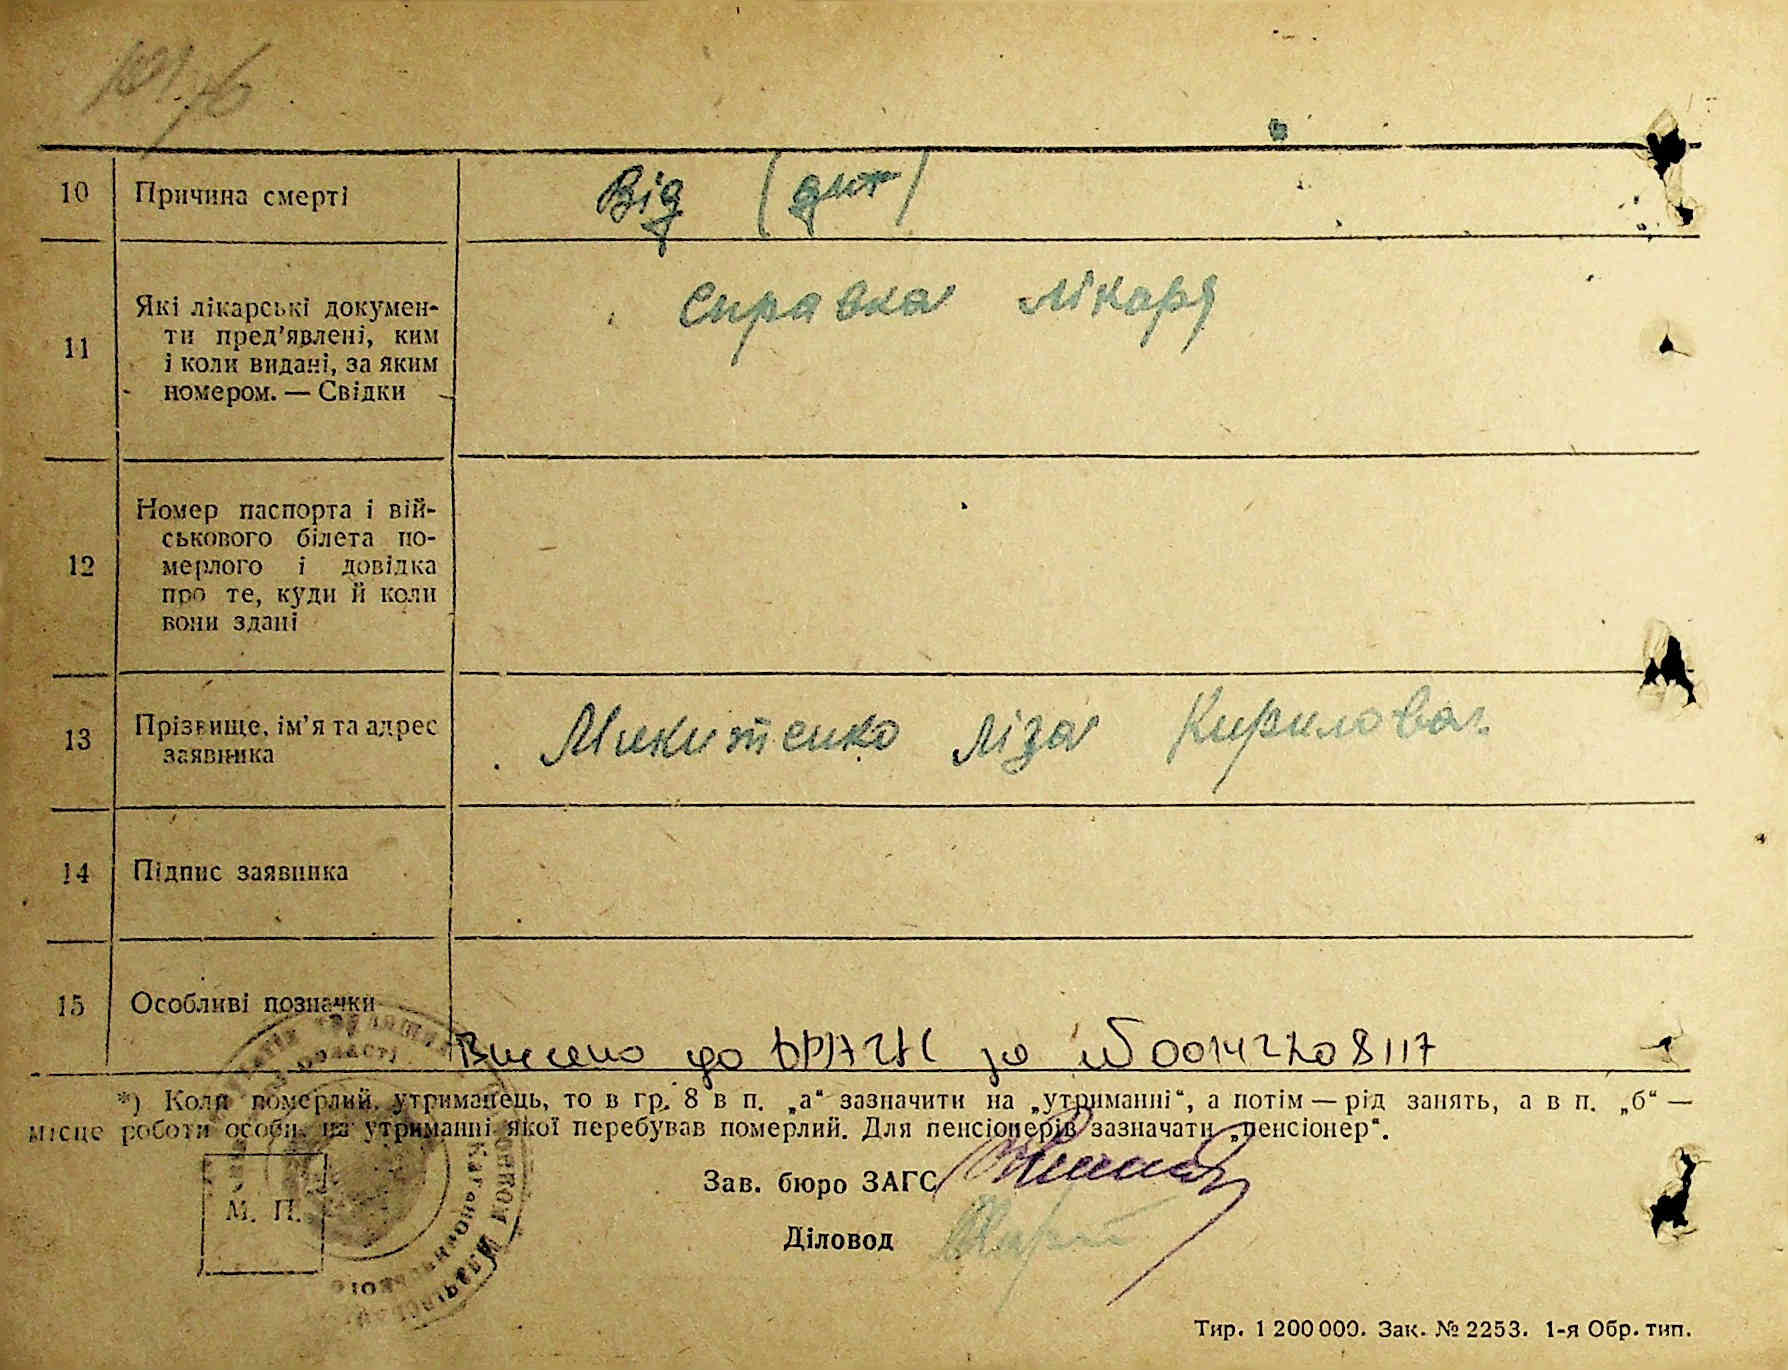 10 Причина смерті Від (дит)
11 Які лікарські докумен-
ти пред'явлені, ким
і коли видані, за яким
номером. — Свідки
справка лікаря
12 Номер паспорта і вій-
ськового білета по-
мерлого і довідка
про те, куди й коли
вони здані
13 Прізвище, ім'я та адрес
заявника
Микитенко Ліза Кирилова.
14 Підпис заявника
15 Особливі позначки
Внесено до ДРАЦС за № 00142708117
*) Коли померлий, утриманець, то в гр. 8 в п. „а“ зазначити на „утриманні“, а потім — рід занять, а в п. „б“ —
місце роботи особи, на утриманні якої перебував померлий. Для пенсіонерів зазначати „пенсіонер“.
Зав. бюро ЗАГС
М. П.
Діловод
Тир. 1 200 000. Зак. № 2253. 1-я Обр. тип.